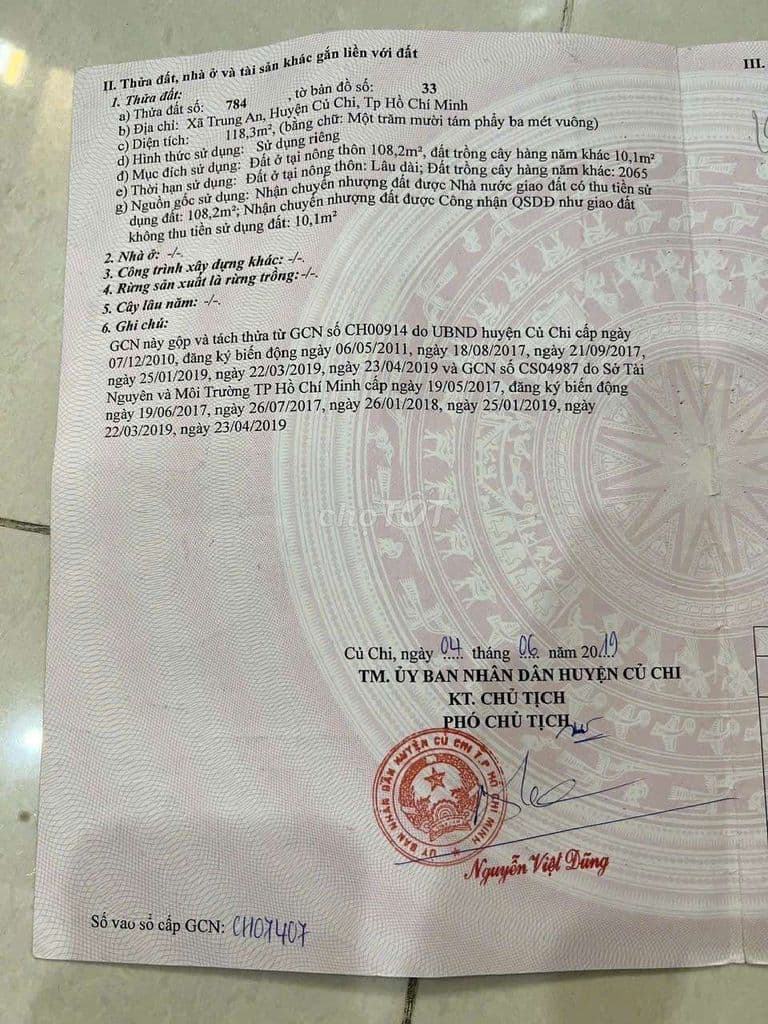 II. Thửa đất, nhà ở và tài sản khác gắn liền với đất
III.
1. Thửa đất:
a) Thửa đất số: 784 , tờ bản đồ số: 33
b) Địa chỉ: Xã Trung An, Huyện Củ Chi, Tp Hồ Chí Minh
c) Diện tích: 118,3m², (bằng chữ: Một trăm mười tám phẩy ba mét vuông)
d) Hình thức sử dụng: Sử dụng riêng
đ) Mục đích sử dụng: Đất ở tại nông thôn 108,2m², đất trồng cây hàng năm khác 10,1m²
e) Thời hạn sử dụng: Đất ở tại nông thôn: Lâu dài; Đất trồng cây hàng năm khác: 2065
g) Nguồn gốc sử dụng: Nhận chuyển nhượng đất được Nhà nước giao đất có thu tiền sử
dụng đất: 108,2m²; Nhận chuyển nhượng đất được Công nhận QSDĐ như giao đất
không thu tiền sử dụng đất: 10,1m²
2. Nhà ở: -/-.
3. Công trình xây dựng khác: -/-.
4. Rừng sản xuất là rừng trồng:-/-.
5. Cây lâu năm: -/-.
6. Ghi chú:
GCN này gộp và tách thửa từ GCN số CH00914 do UBND huyện Củ Chi cấp ngày
07/12/2010, đăng ký biến động ngày 06/05/2011, ngày 18/08/2017, ngày 21/09/2017,
ngày 25/01/2019, ngày 22/03/2019, ngày 23/04/2019 và GCN số CS04987 do Sở Tài
Nguyên và Môi Trường TP Hồ Chí Minh cấp ngày 19/05/2017, đăng ký biến động
ngày 19/06/2017, ngày 26/07/2017, ngày 26/01/2018, ngày 25/01/2019, ngày
22/03/2019, ngày 23/04/2019
chợTỐT
Củ Chi, ngày 04 tháng 06 năm 2019
TM. ỦY BAN NHÂN DÂN HUYỆN CỦ CHI
KT. CHỦ TỊCH
PHÓ CHỦ TỊCH
ỦY BAN NHÂN DÂN HUYỆN CỦ CHI T.P HỒ CHÍ MINH
Nguyễn Việt Dũng
Số vào sổ cấp GCN: CH07407